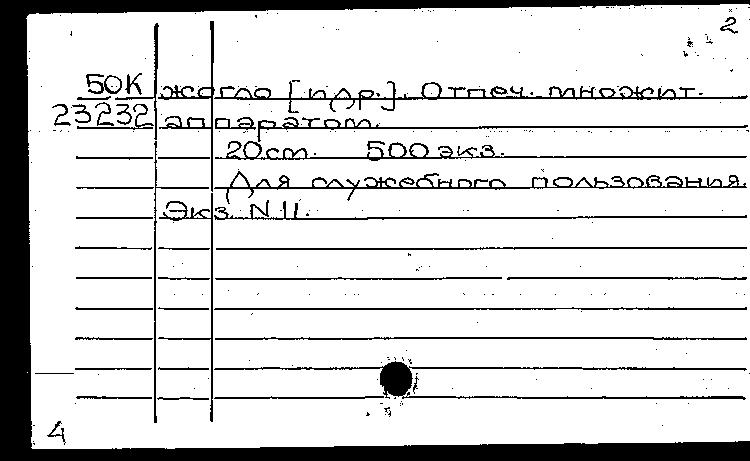 2
50К жогло [и др.]. Отпеч. множит.
23232 аппаратом.
20 см. 500 экз.
Для служебного пользования.
Экз. N 11.
4